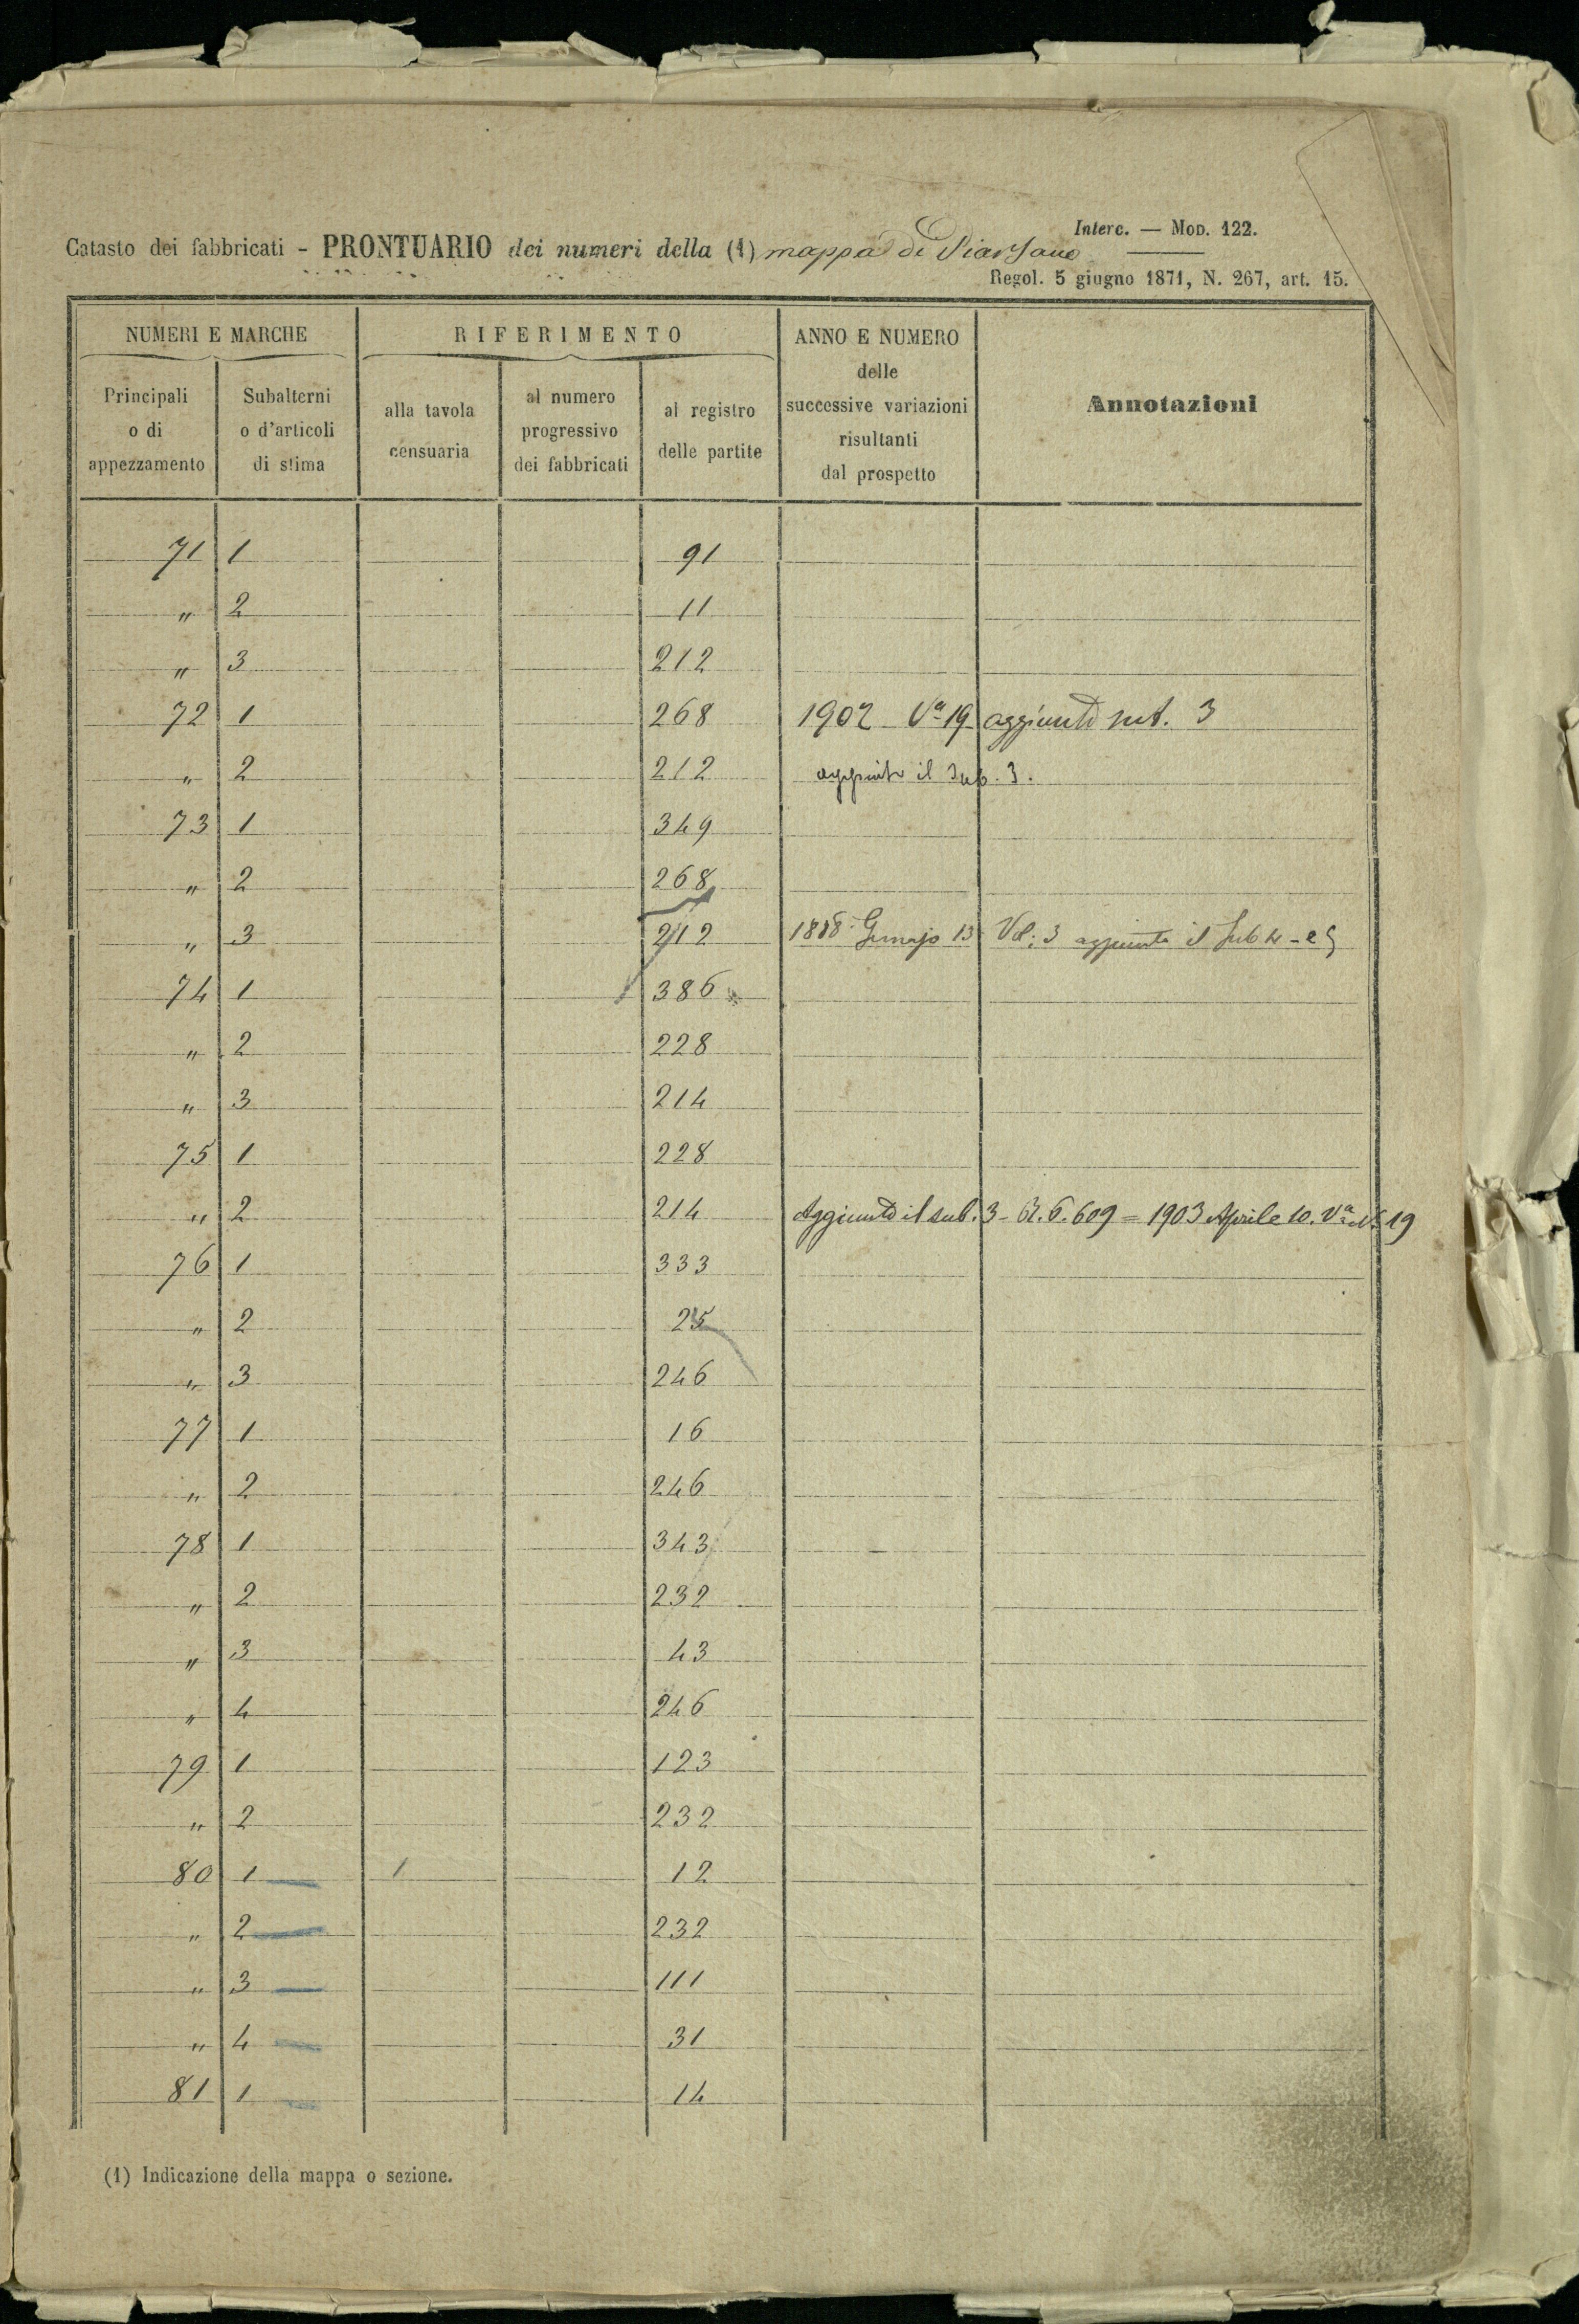 Interc. — Mod. 122.
Catasto dei fabbricati - PRONTUARIO dei numeri della (1) mappa di Piansano
Regol. 5 giugno 1871, N. 267, art. 15.
NUMERI E MARCHE RIFERIMENTO ANNO E NUMERO delle successive variazioni risultanti dal prospetto Annotazioni
Principali o di appezzamento Subalterni o d'articoli di stima alla tavola censuaria al numero progressivo dei fabbricati al registro delle partite
71 1 91
" 2 11
" 3 212
72 1 268 1902 Va 19 aggiunto sub. 3
" 2 212 aggiunto il Sub. 3.
73 1 349
" 2 268
" 3 212 1888 Gennajo 13 Vol: 3 aggiunto il Sub 4 - e 5
74 1 386
" 2 228
" 3 214
75 1 228
" 2 214 Aggiunto il sub. 3 - 6. 609 = 1903 Aprile 10. Va N. 19
76 1 333
" 2 25
" 3 246
77 1 16
" 2 246
78 1 343
" 2 232
" 3 43
" 4 246
79 1 123
" 2 232
80 1 1 12
" 2 232
" 3 111
" 4 31
81 1 14
(1) Indicazione della mappa o sezione.